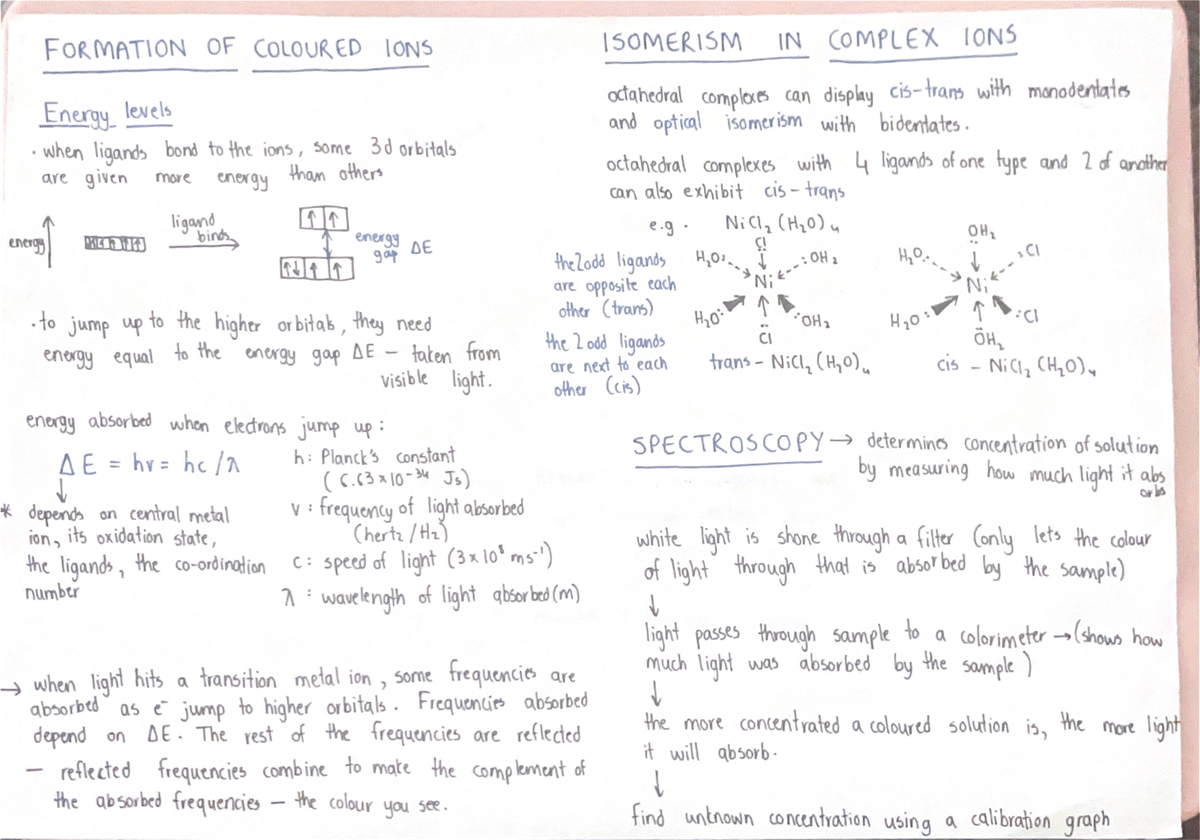 FORMATION OF COLOURED IONS
Energy levels
· when ligands bond to the ions, some 3d orbitals
are given more energy than others
energy
ligand
binds
energy
gap ΔE
· to jump up to the higher orbitals, they need
energy equal to the energy gap ΔE – taken from
visible light.
energy absorbed when electrons jump up :
ΔE = hv = hc / λ
* depends on central metal
ion, its oxidation state,
the ligands, the co-ordination
number
h : Planck's constant
( 6.63 × 10⁻³⁴ Js )
v : frequency of light absorbed
(hertz / Hz)
c : speed of light (3 × 10⁸ ms⁻¹)
λ : wavelength of light absorbed (m)
→ when light hits a transition metal ion, some frequencies are
absorbed as e⁻ jump to higher orbitals. Frequencies absorbed
depend on ΔE. The rest of the frequencies are reflected
– reflected frequencies combine to make the complement of
the absorbed frequencies – the colour you see.
ISOMERISM IN COMPLEX IONS
octahedral complexes can display cis-trans with monodentates
and optical isomerism with bidentates.
octahedral complexes with 4 ligands of one type and 2 of another
can also exhibit cis-trans
e.g. NiCl₂(H₂O)₄
the 2 odd ligands
are opposite each
other (trans)
the 2 odd ligands
are next to each
other (cis)
Cl
H₂O: :OH₂
Ni
H₂O: :OH₂
Cl
trans – NiCl₂(H₂O)₄
OH₂
H₂O: :Cl
Ni
H₂O: :Cl
OH₂
cis – NiCl₂(H₂O)₄
SPECTROSCOPY → determines concentration of solution
by measuring how much light it abs
orbs
white light is shone through a filter (only lets the colour
of light through that is absorbed by the sample)
↓
light passes through sample to a colorimeter → (shows how
much light was absorbed by the sample)
↓
the more concentrated a coloured solution is, the more light
it will absorb.
↓
find unknown concentration using a calibration graph